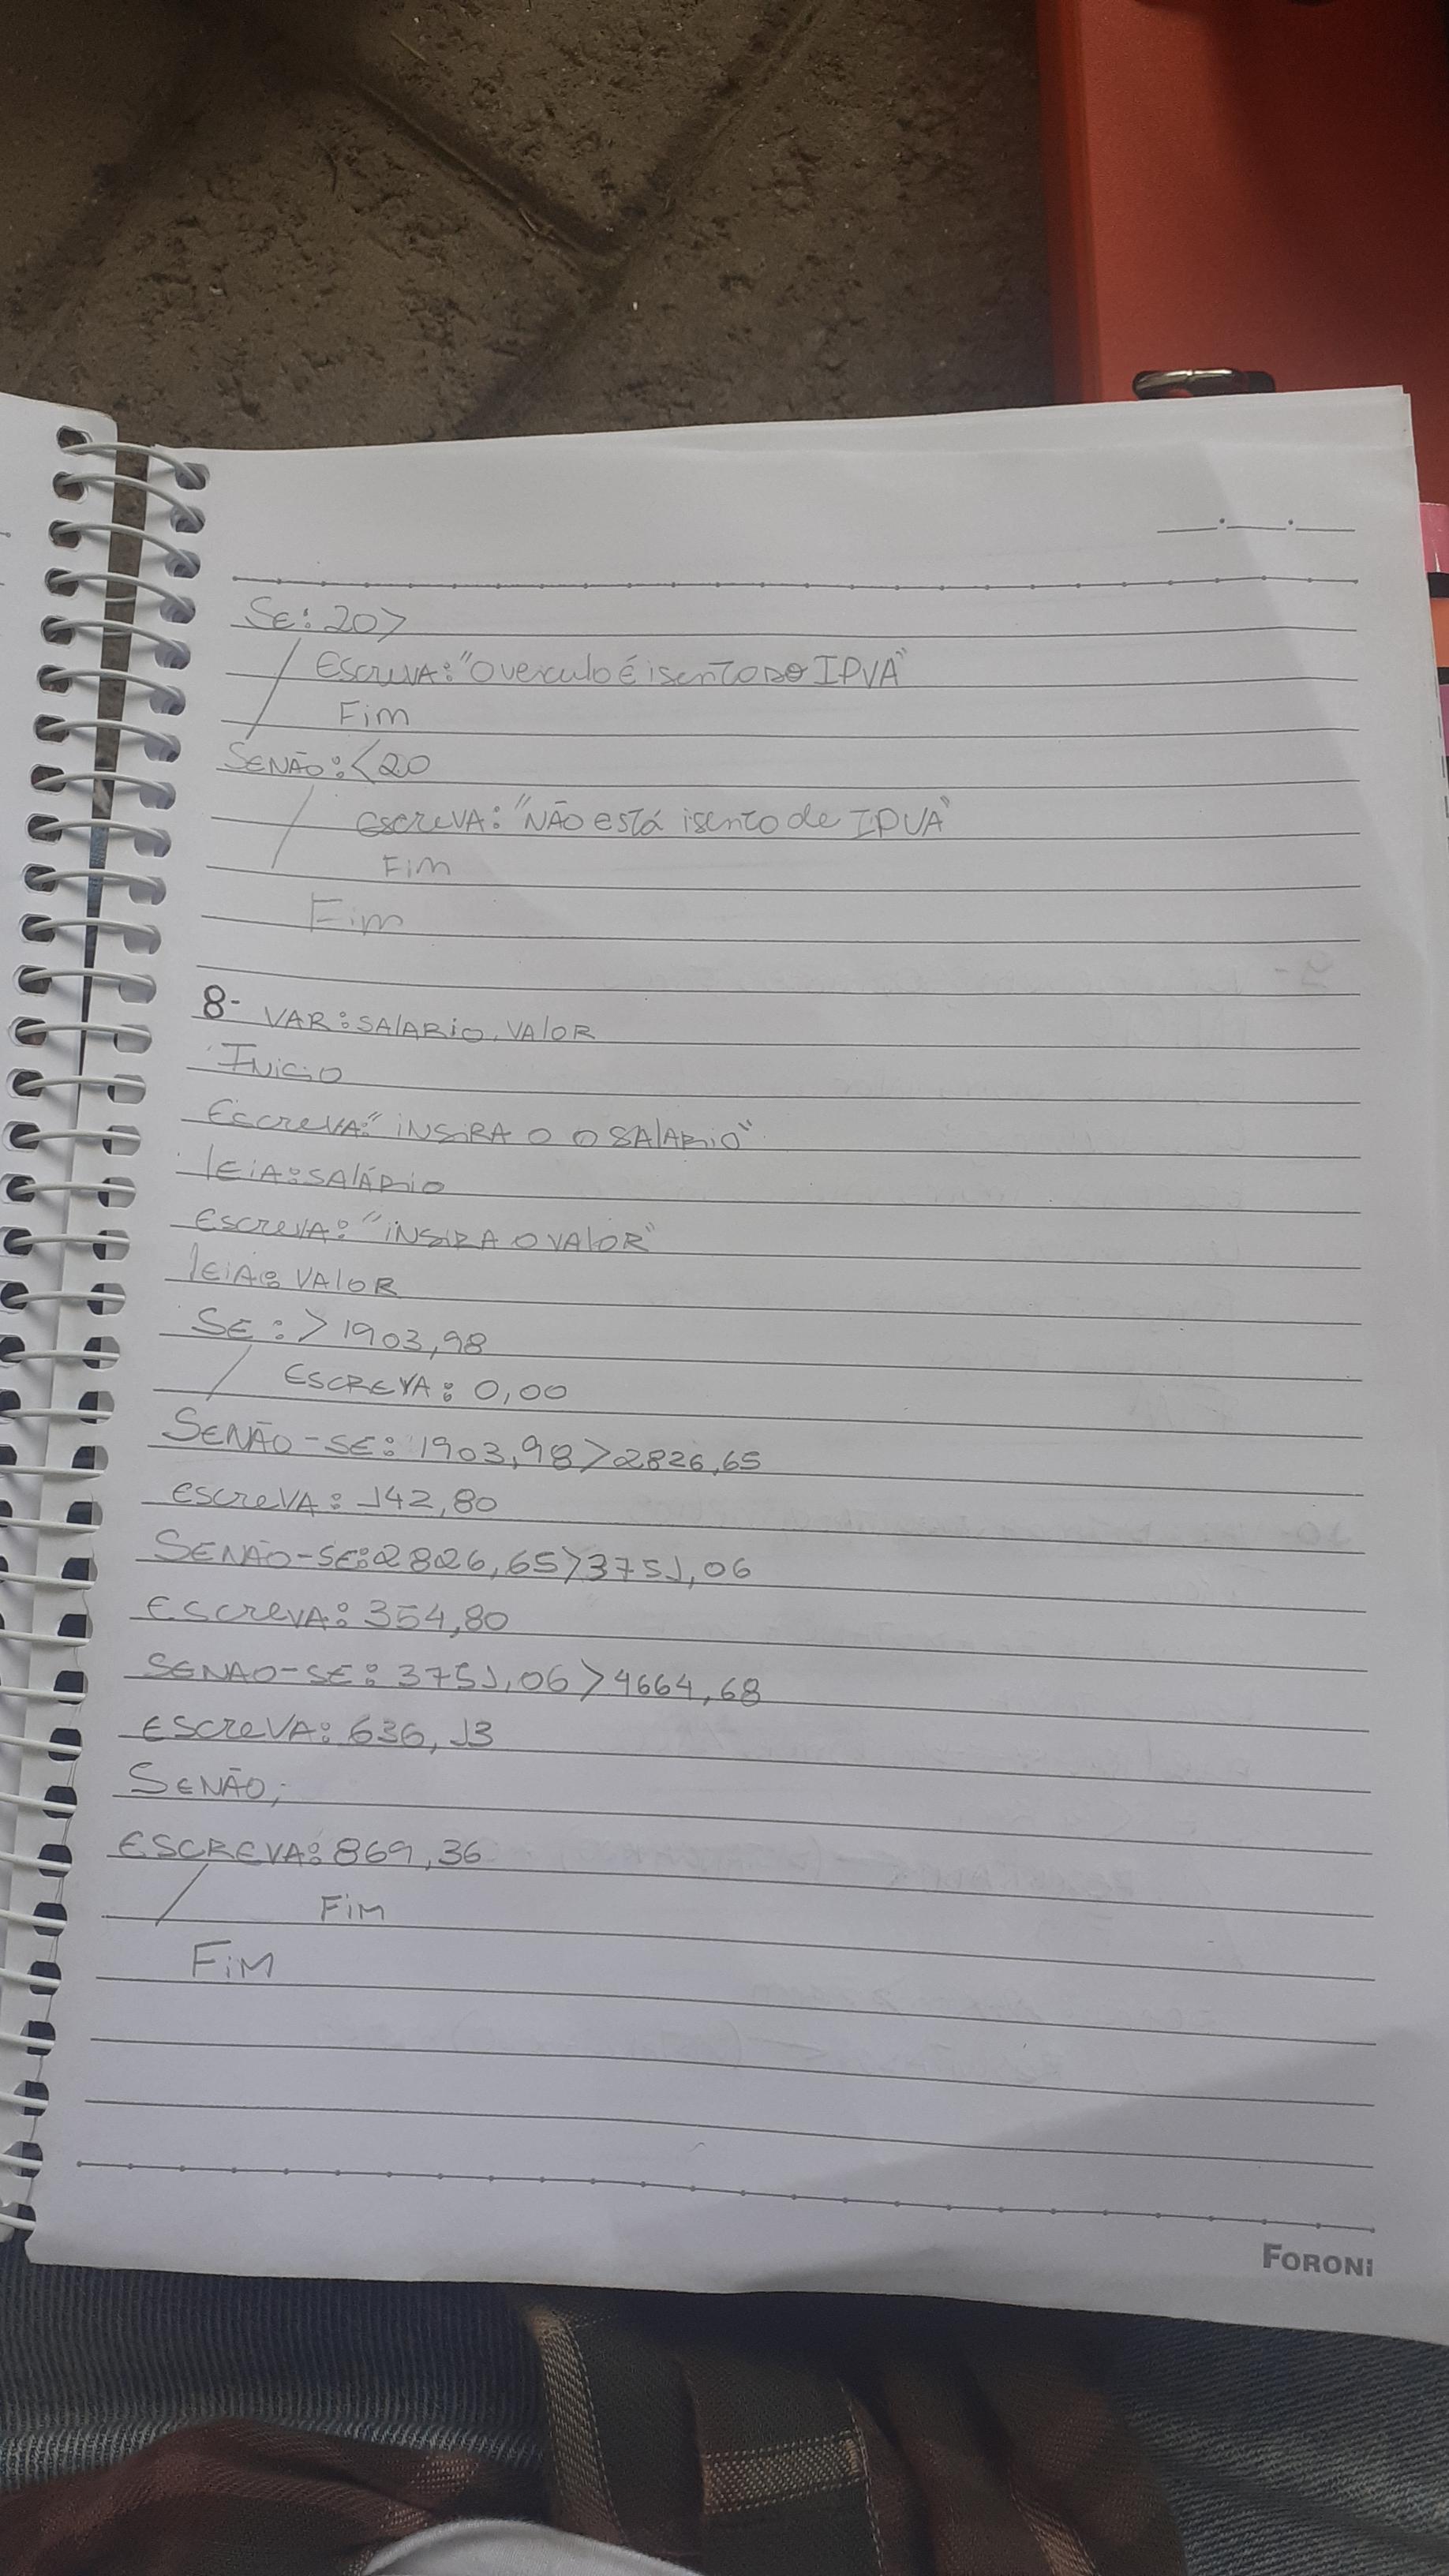 SE: 20>
Escreva: "O veiculo é isento do IPVA"
Fim
SENÃO: <20
escreva: "NÃO está isento de IPVA"
Fim
Fim
8- VAR: SALARIO, VALOR
INICIO
Escreva: "INSIRA O O SALARIO"
leia: SALÁRIO
escreva: "INSIRA O VALOR"
leia: VALOR
SE: > 1903,98
ESCREVA: 0,00
SENÃO-SE: 1903,98>2826,65
escreva: 142,80
SENÃO-SE: 2826,65>3751,06
escreva: 354,80
SENAO-SE: 3751,06>4664,68
escreva: 636,13
SENÃO;
ESCREVA: 869,36
Fim
Fim
FORONI